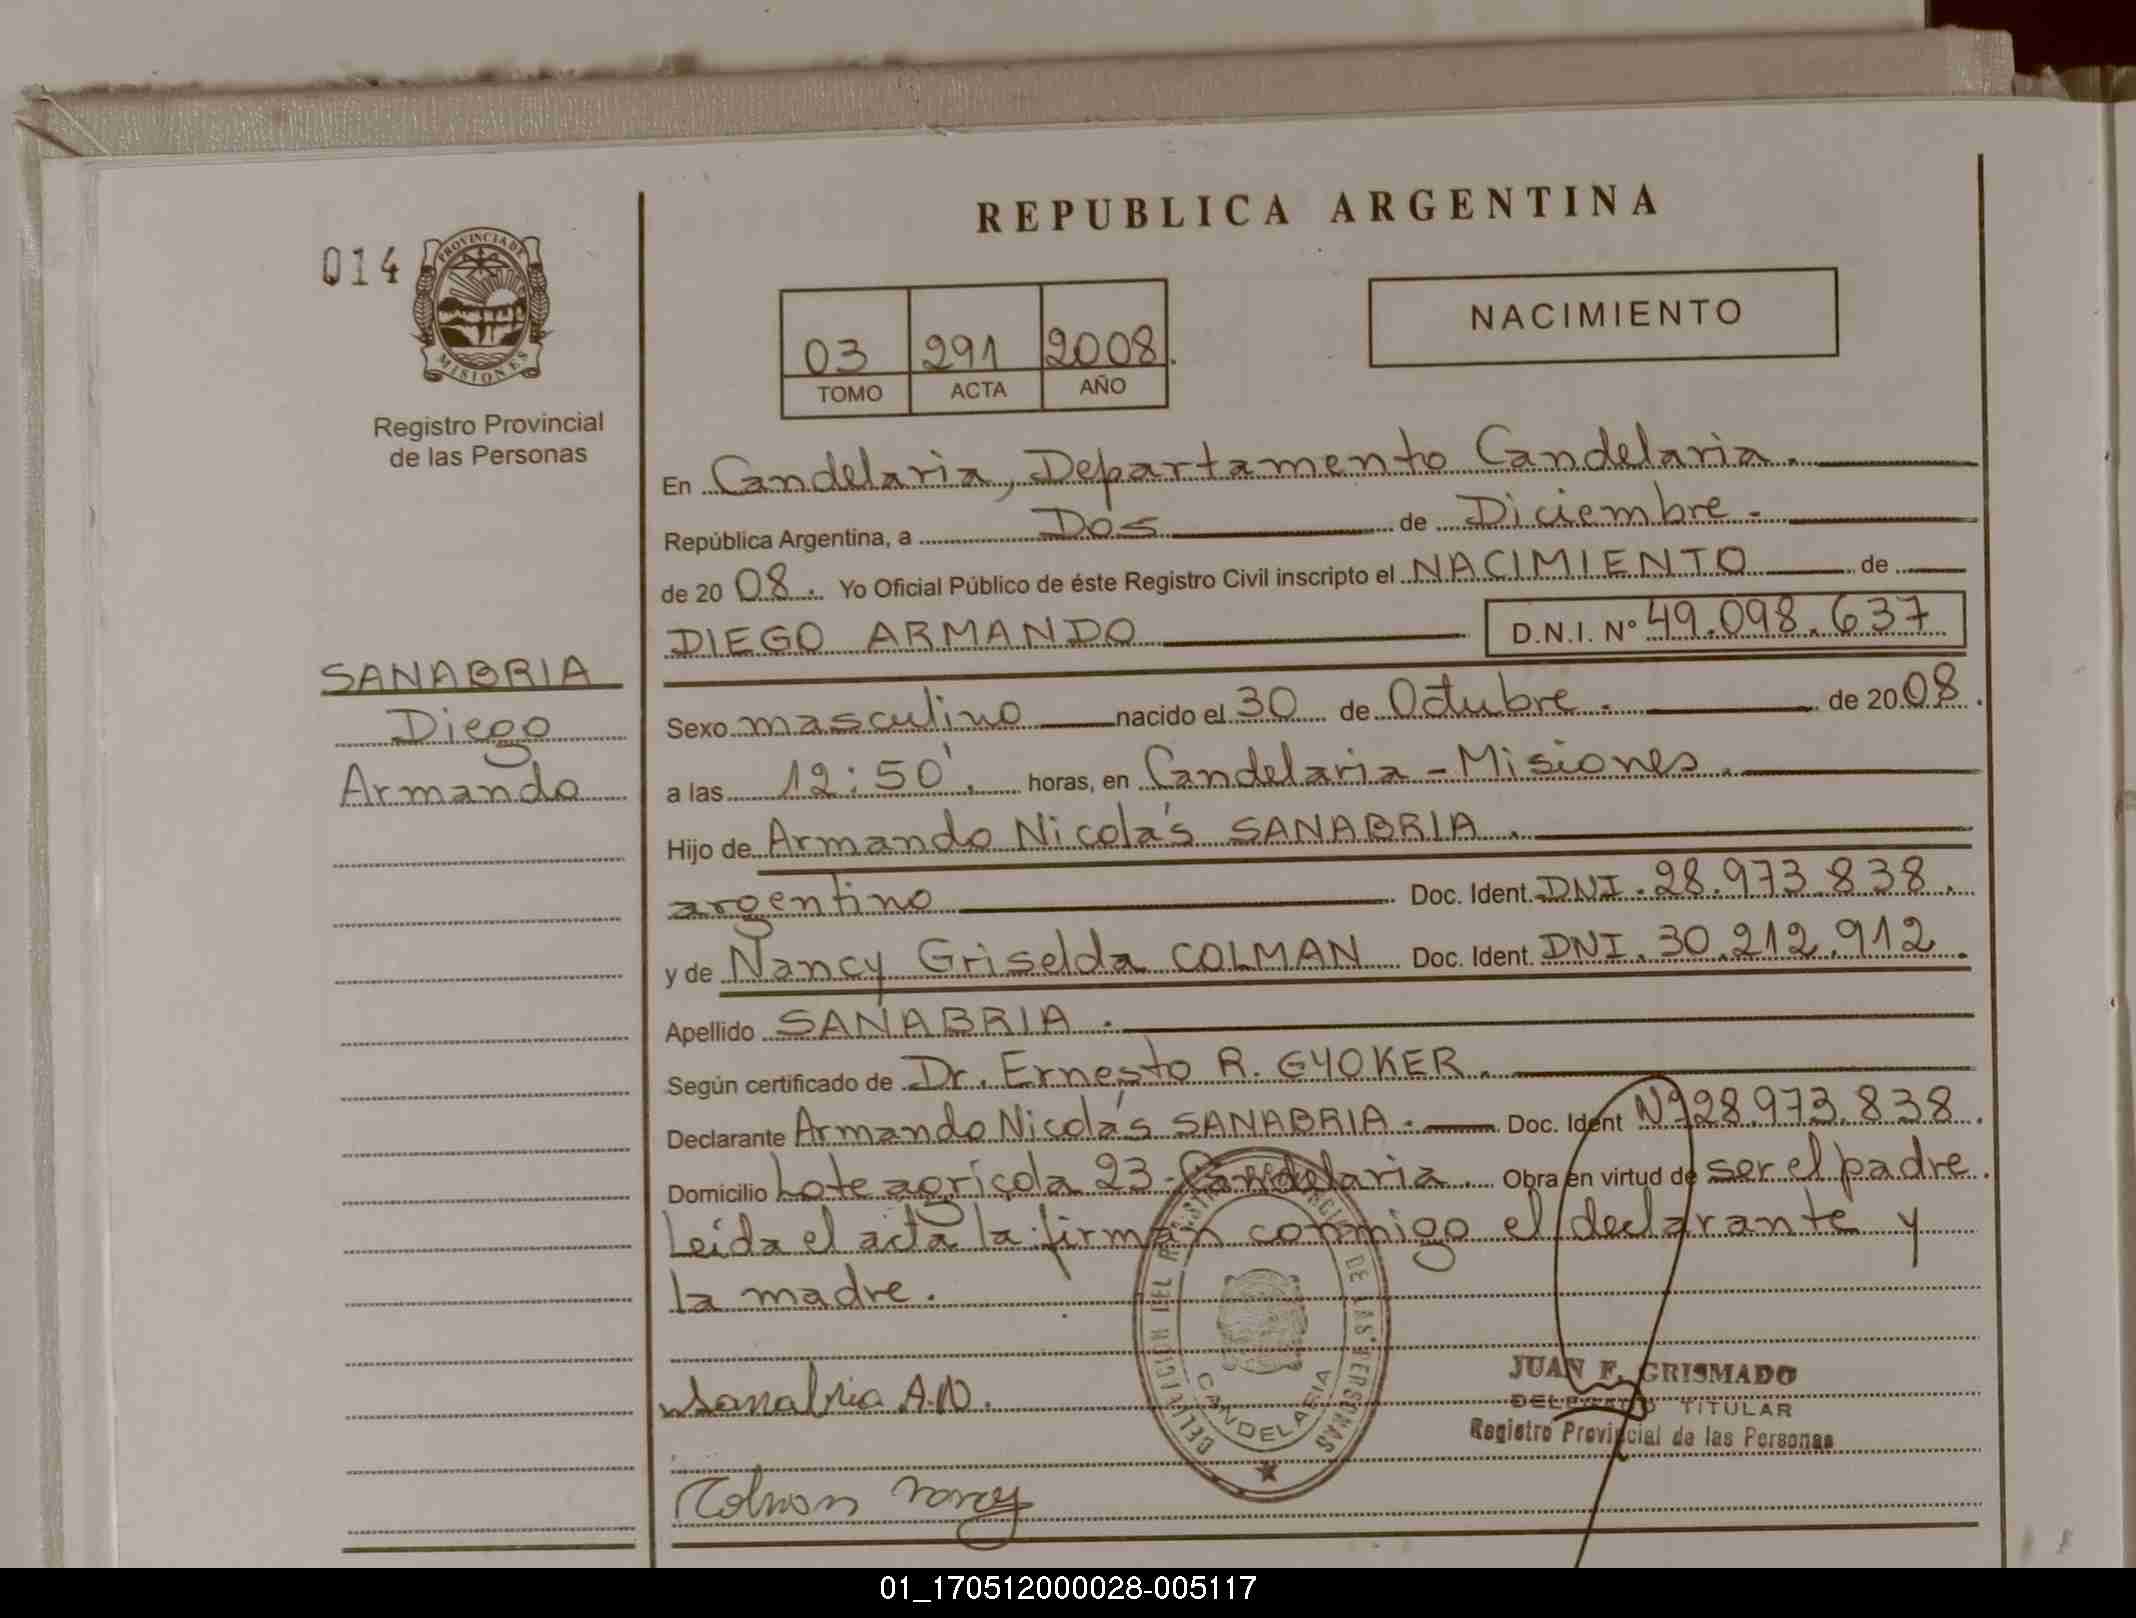 REPUBLICA ARGENTINA
014
PROVINCIA DE
MISIONES
Registro Provincial
de las Personas
03 291 2008.
TOMO ACTA AÑO
NACIMIENTO
En Candelaria, Departamento Candelaria.
República Argentina, a Dos de Diciembre.
de 20 08. Yo Oficial Público de éste Registro Civil inscripto el NACIMIENTO de
DIEGO ARMANDO D.N.I. Nº 49.098.637
SANABRIA
Diego
Armando
Sexo masculino nacido el 30 de Octubre. de 20 08.
a las 12:50'. horas, en Candelaria - Misiones.
Hijo de Armando Nicolás SANABRIA.
argentino Doc. Ident. DNI. 28.973.838.
y de Nancy Griselda COLMAN Doc. Ident. DNI. 30.212.912.
Apellido SANABRIA.
Según certificado de Dr. Ernesto R. GYOKER.
Declarante Armando Nicolás SANABRIA. Doc. Ident Nº 28.973.838.
Domicilio Lote agrícola 23 - Candelaria. Obra en virtud de ser el padre.
Leída el acta la firman conmigo el declarante y
la madre.
Sanabria A.N.
Colman Nancy
DELEGACION DEL REGISTRO PROVINCIAL DE LAS PERSONAS
CANDELARIA
JUAN F. GRISMADO
DELEGADO TITULAR
Registro Provincial de las Personas
01_170512000028-005117